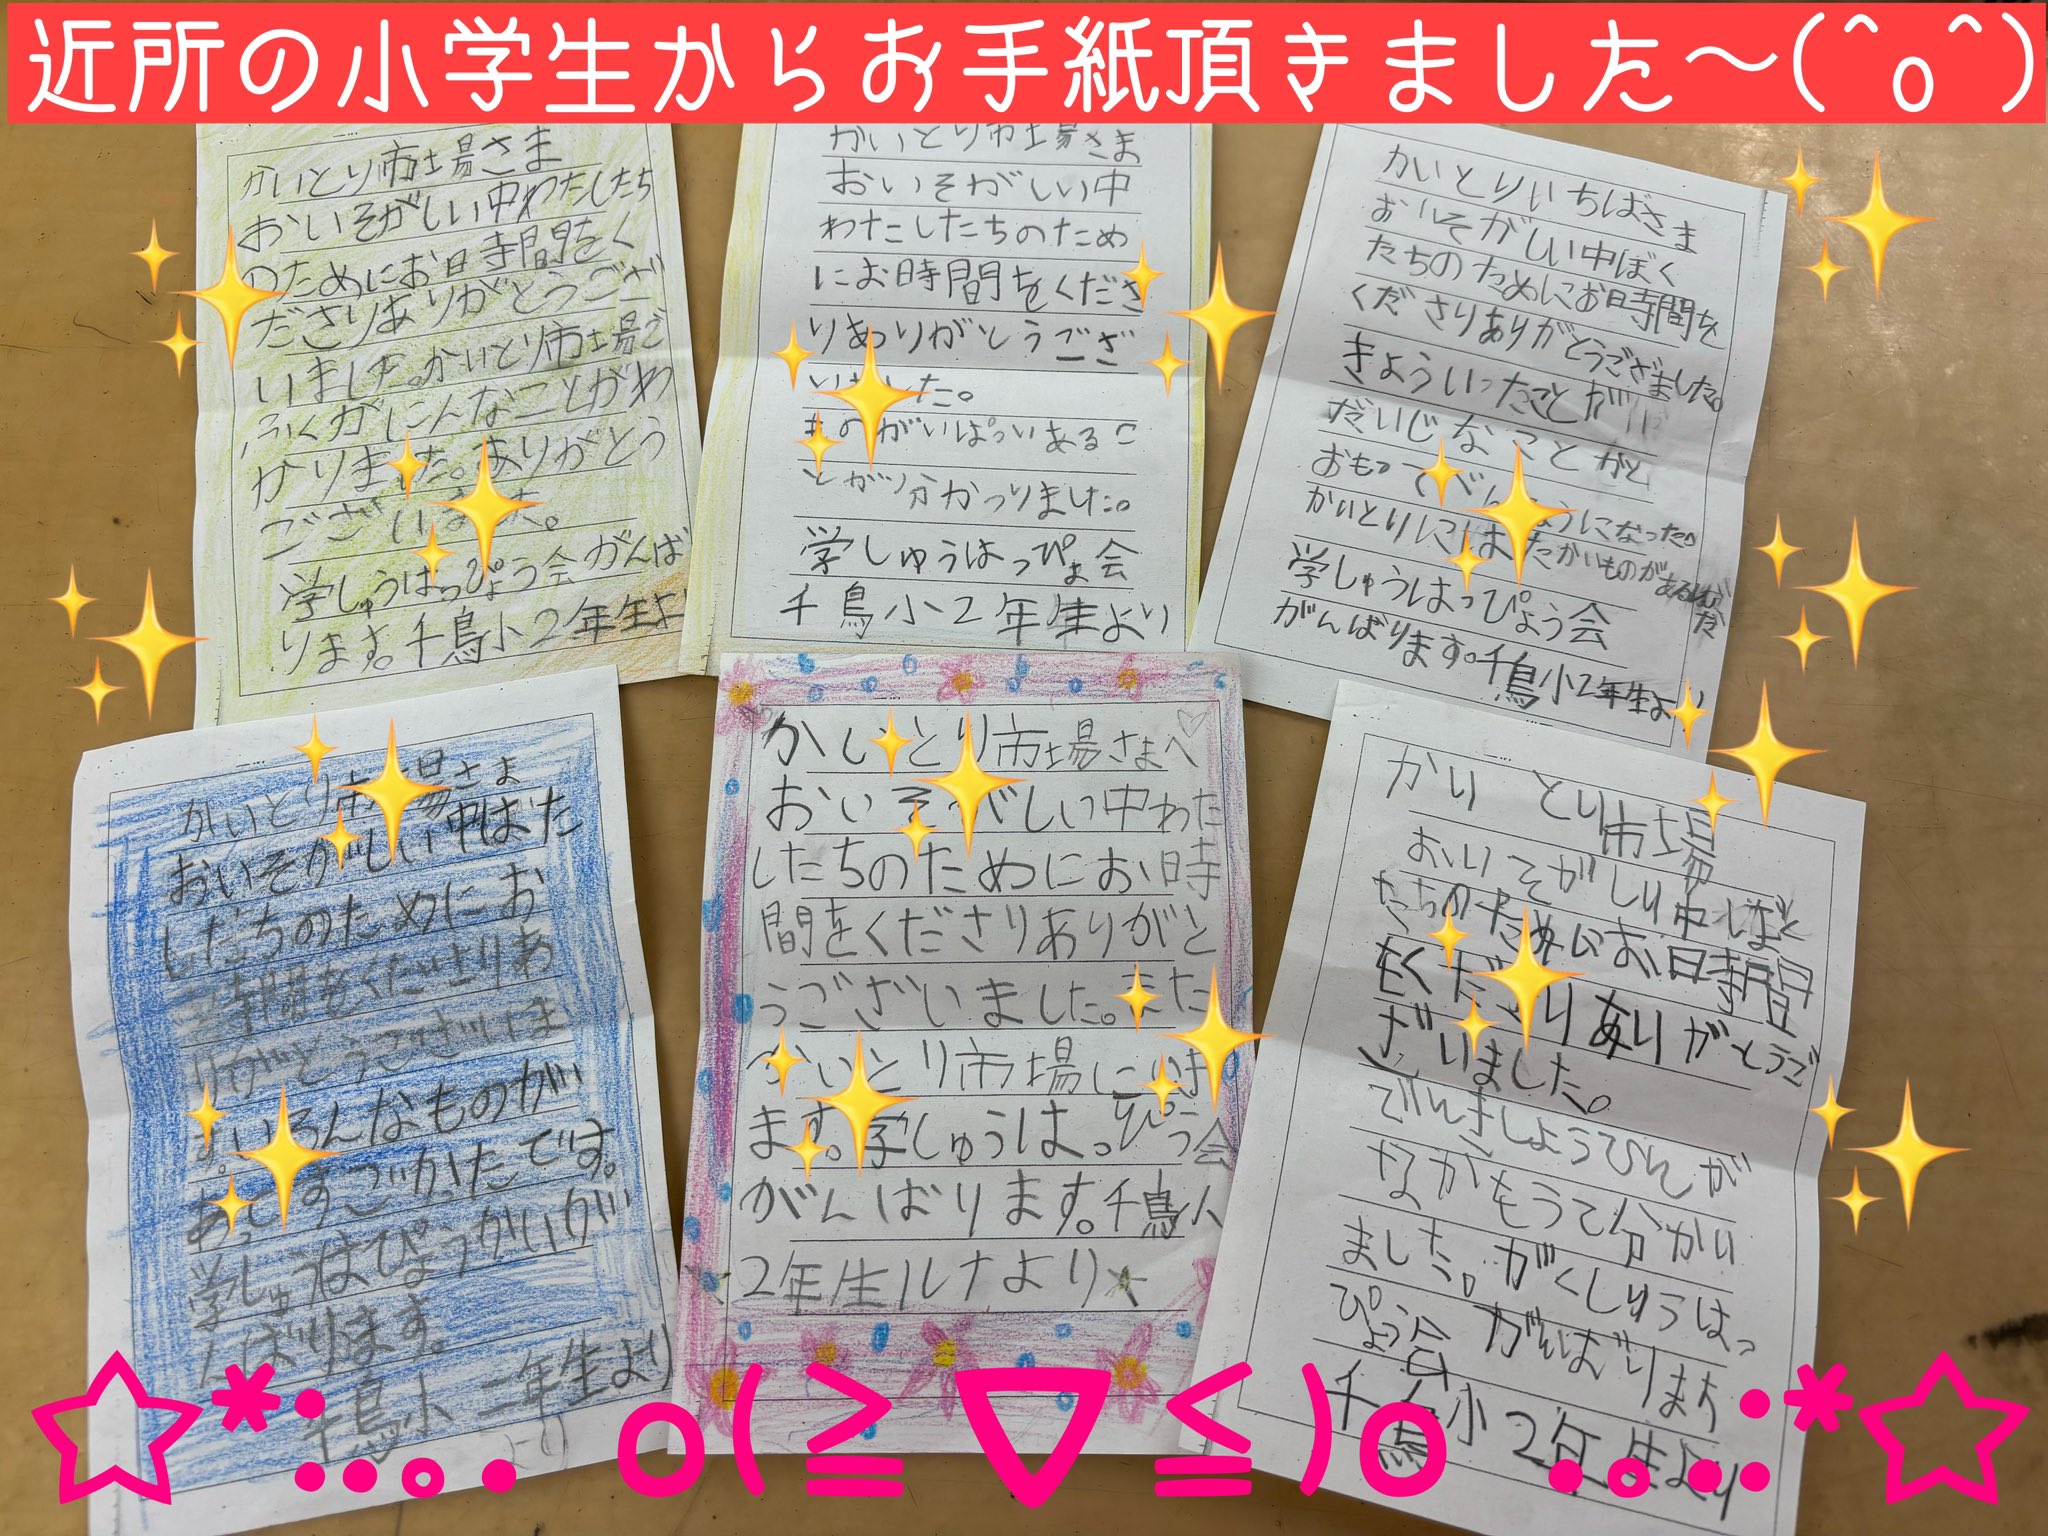 近所の小学生からお手紙頂きました〜(^o^)
かいとり市場さま
おいそがしい中わたしたち
のためにお時間をく
ださりありがとうござ
いました。かいとり市場ご
ふくがにんなことがわ
かりました。ありがとう
ございました。
学しゅうはっぴょう会がんば
ります。千鳥小2年生より
かいとり市場さま
おいそがしい中
わたしたちのため
にお時間をくださ
りありがとうござ
いました。
ものがいぱっいあるこ
とが分かつりました。
学しゅうはっぴょ会
千鳥小2年生より
かいとりいちばさま
おいそがしい中ぼく
たちのためにお時間を
くださりありがとうございました。
きょういったことが
だいじなことがと
おもって
かいとりにはたかいものがある
学しゅうはっぴょう会
がんばります。千鳥小2年生より
かいとり市場さま
おいそがしい中ばた
しだちのためにお
時間をくださりあ
りがとうございま
す。いろんなものが
あってすごかったです。
学しゅはぴょうかいが
んばります。
千鳥小 二年生より
かいとり市場さまへ
おいそがしい中わた
したちのためにお時
間をくださりありがと
うございました。また
かいとり市場にいき
ます。学しゅうはっぴう会
がんばります。千鳥小
2年生ルナより☆
かいとり市場
おいそがしい中ぼく
たちのためにお時間
をくださりありがとうご
ざいました。
でんきしょうひんが
なかもうて分かい
ました。がくしゅうはっ
ぴょう会がんばります
千鳥小2年生より
☆*:..｡. o(≧▽≦)o .｡.:*☆